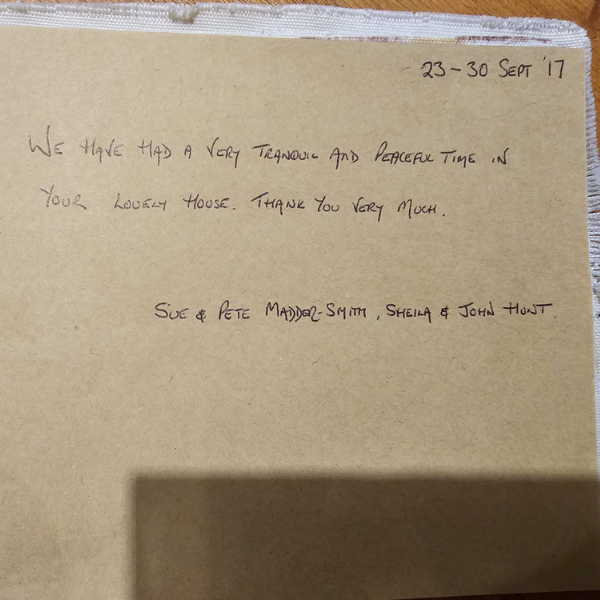 23 - 30 SEPT '17
WE HAVE HAD A VERY TRANQUIL AND PEACEFUL TIME IN
YOUR LOVELY HOUSE. THANK YOU VERY MUCH.
SUE & PETE MADDER-SMITH, SHEILA & JOHN HUNT.